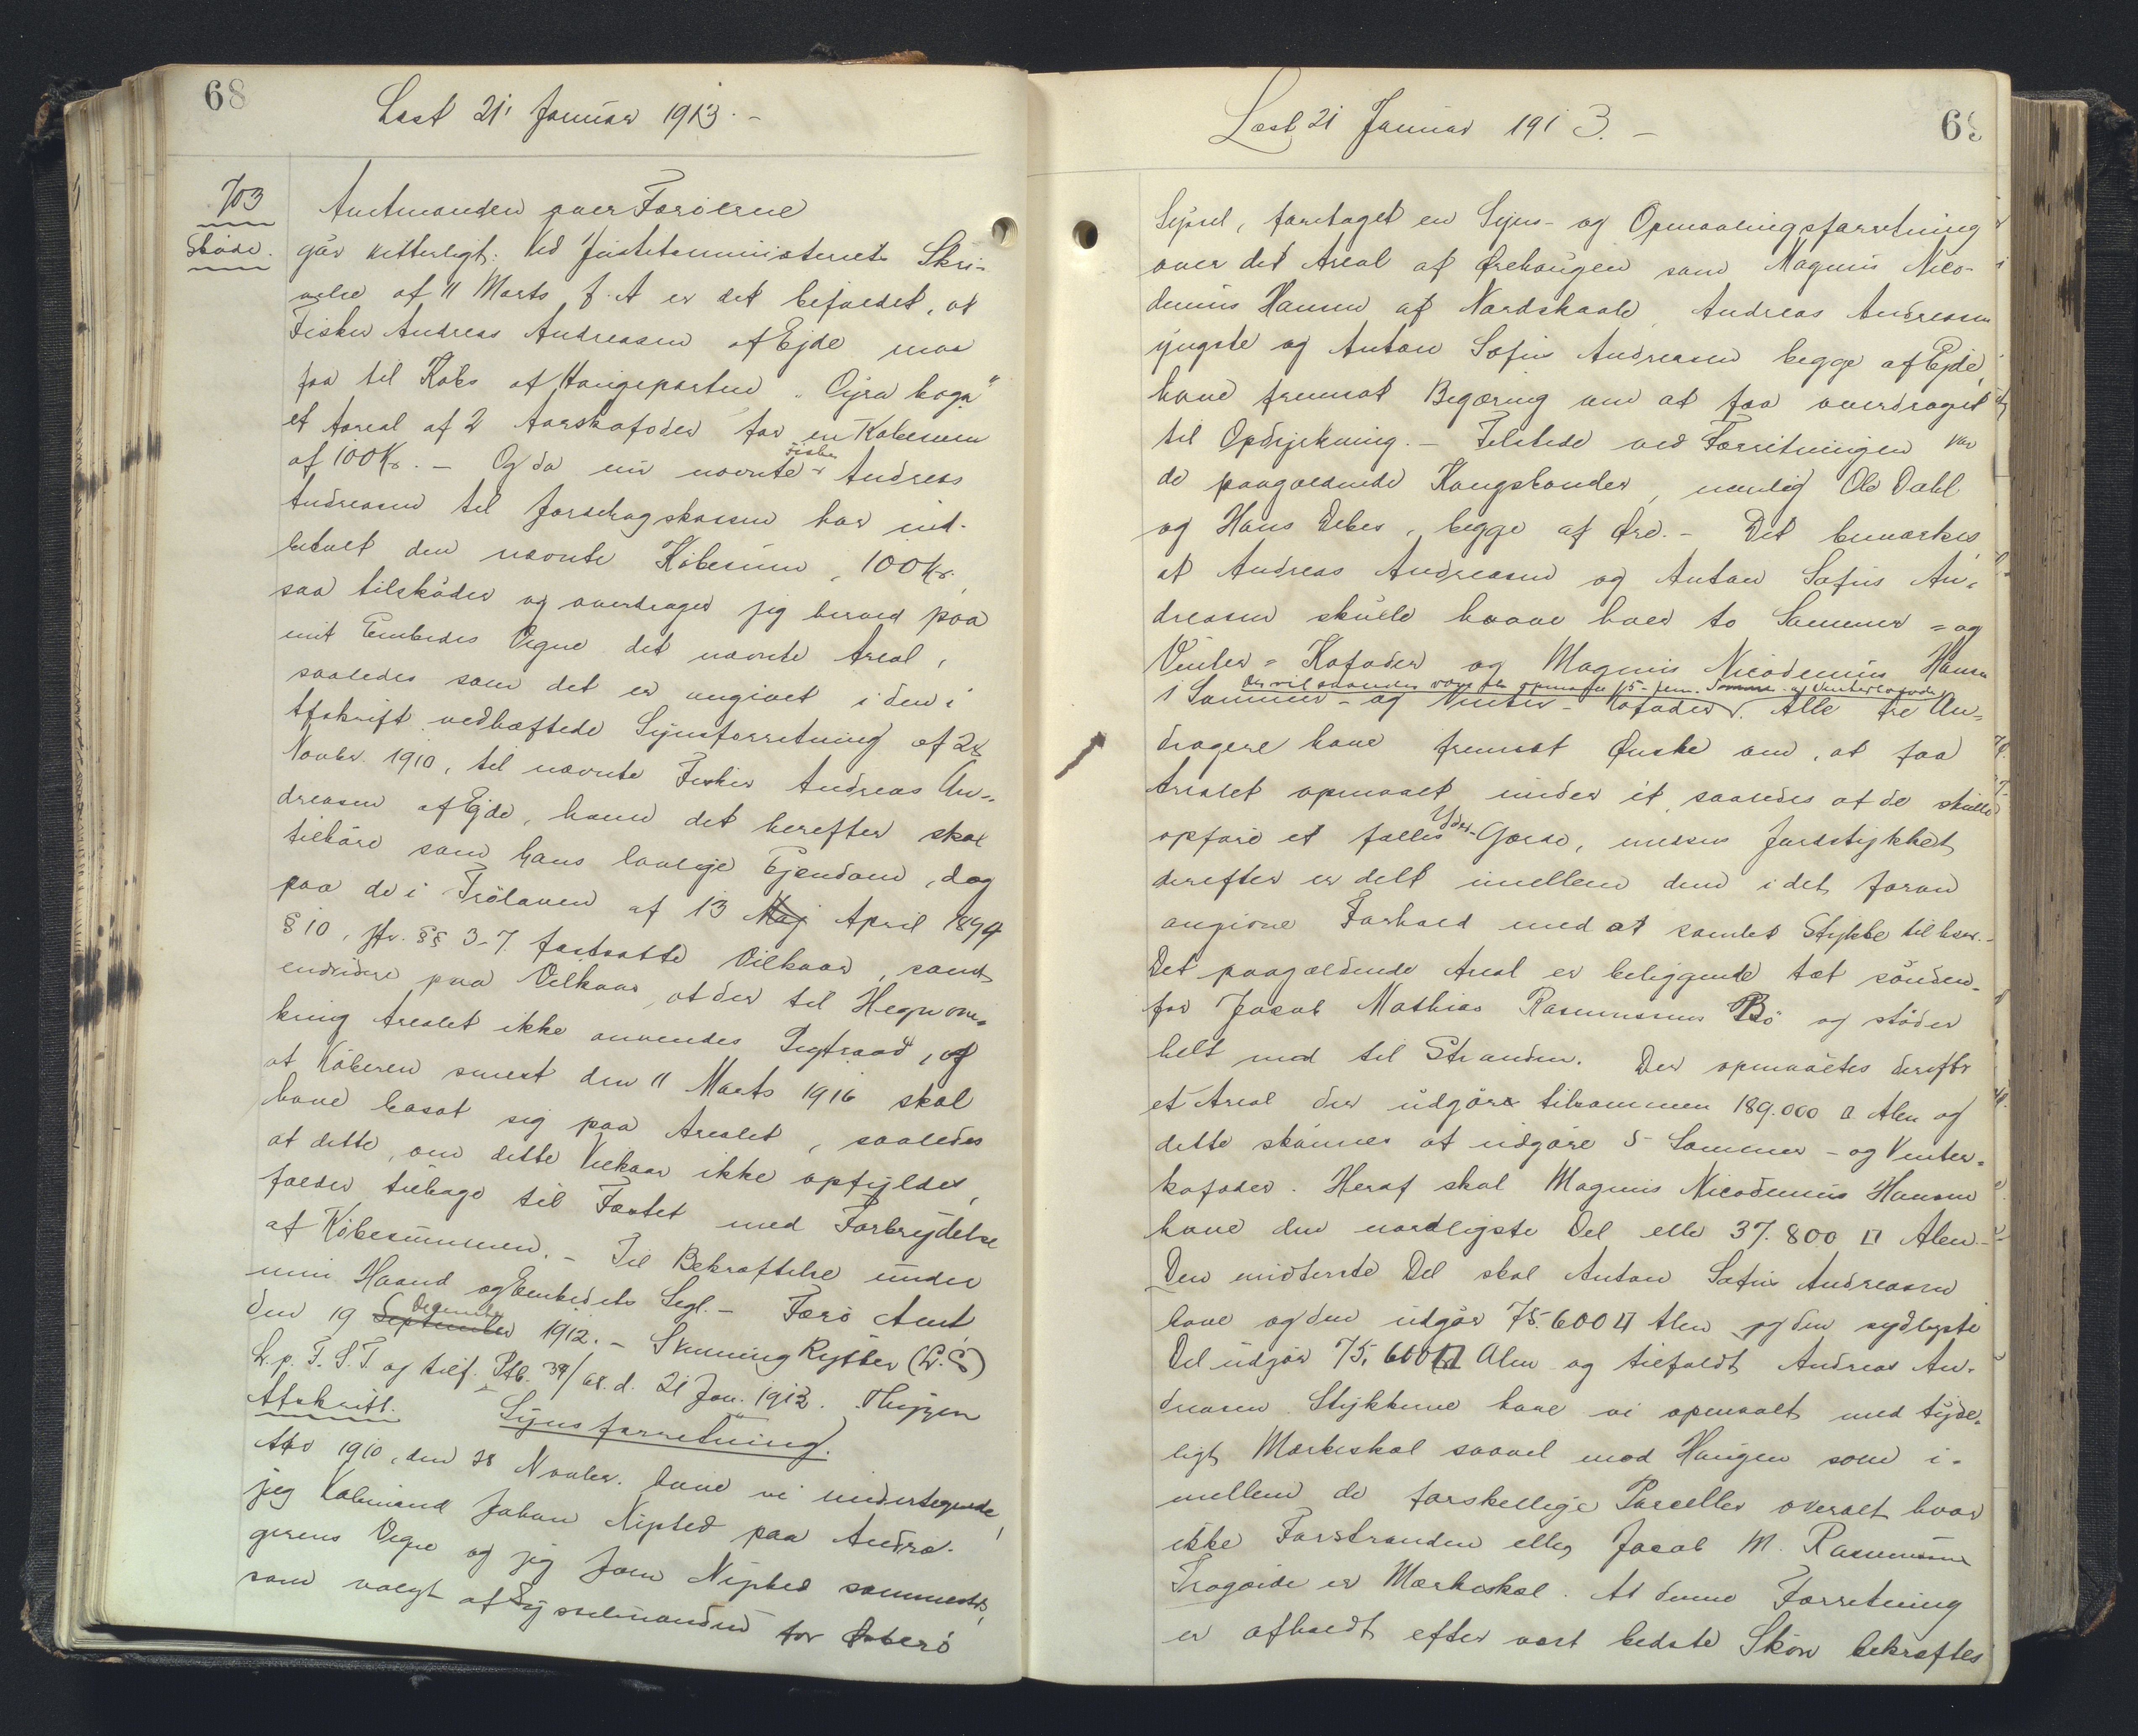 68
Læst 21' Januar 1913. -
703
Skøde.
Amtmanden over Færøerne
gør vitterligt: Ved Justitsministeriets Skri-
velse af 11 Marts f. A er det bifaldet, at
Fisker Andreas Andreasen af Ejde maa
faa til Købs af Haugeparten "Oyra haga"
et Areal af 2 Aarskofoder for en Købesum
af 100 Kr. - Og da nu nævnte Fisker Andreas
Andreasen til Jordebogskassen har ind-
betalt den nævnte Købesum, 100 Kr.
saa tilskøder og overdrager jeg herved paa
mit Embedes Vegne det nævnte Areal,
saaledes som det er angivet i den i
Afskrift vedhæftede Synsforretning af 28
Novbr. 1910, til nævnte Fisker Andreas An-
dreasen af Ejde, ham det herefter skal
tilhøre som hans lovlige Ejendom, dog
paa de i Lov af 13 Maj April 1894
§ 10, jfr. §§ 3-7. fastsatte Vilkaar, samt
endvidere paa Vilkaar, at der til Hegn om-
kring Arealet ikke anvendes Pigtraad, og
at Køberen senest den 11 Marts 1916 skal
have bosat sig paa Arealet, saaledes
at dette, om dette Vilkaar ikke opfyldes,
falder tilbage til Fæstet med Forbrydelse
af Købesummen. - Til Bekræftelse under
min Haand og Embedets Segl. - Færø Amt,
den 19 September December 1912. - Svenning Rytter (L.S)
L. p. F. S. T. og tilf. Ptb. 39/68. d. 21 Jan. 1913.
Afskrift. Synsforretning.
Aar 1910, den 28 Novbr. have vi undertegnede,
jeg Købmand Johan Niclsed paa Andra-
gerens Vegne og jeg Joen Niclsed sammesteds,
som valgt af Sysselmanden for Østerø
Læst 21 Januar 1913. -
69
Syssel, foretaget en Syns- og Opmaalingsforretning
over det Areal af Ørehaugen som Magnus Nico-
demus Hansen af Nordskaale, Andreas Andreasen
yngste og Anton Sofus Andreasen begge af Ejde,
have fremsat Begæring om at faa overdraget
til Opdyrkning. - Tilstede ved Forretningen var
de paagældende Kongsbønder, nemlig Ole Dahl
og Hans Debes, begge af Øre. - Det bemærkes
at Andreas Andreasen og Anton Sofus An-
dreasen skulle have hver to Sommer- og
Vinter- Kofoder og Magnus Nicodemus Hansen
Der vil saaledes være at opmaale 5 - fem - Sommer- og Vinterkofoder
1 Sommer- og Vinter- Kofoder. Alle tre An-
dragere have fremsat Ønske om, at faa
Arealet opmaalt under ét, saaledes at de skulle
opføre et fælles Yder-Gærde, medens Jordstykket
derefter er delt imellem dem i det foran
angivne Forhold med et samlet Stykke til hver. -
Det paagældende Areal er beliggende tæt sønden-
for Jacob Mathias Rasmussens Bø og støder
helt ned til Stranden. Der opmaaltes derefter
et Areal der udgøre tilsammen 189.000 □ Alen og
dette skønnes at udgøre 5 Sommer- og Vinter-
kofoder. Heraf skal Magnus Nicodemus Hansen
have den nordligste Del eller 37.800 □ Alen. -
Den midterste Del skal Anton Sofus Andreasen
have og den udgør 75.600 □ Alen og den sydligste
Del udgør 75,600 □ Alen og tilfaldt Andreas An-
dreasen. Stykkerne have vi opmaalt med tyde-
ligt Markeskel saavel mod Haugen som i-
mellem de forskellige Parceller overalt hvor
ikke Forstranden eller Jacob M. Rasmussens
Trøgeide er Markeskel. At denne Forretning
er afholdt efter vort bedste Skøn bekræftes